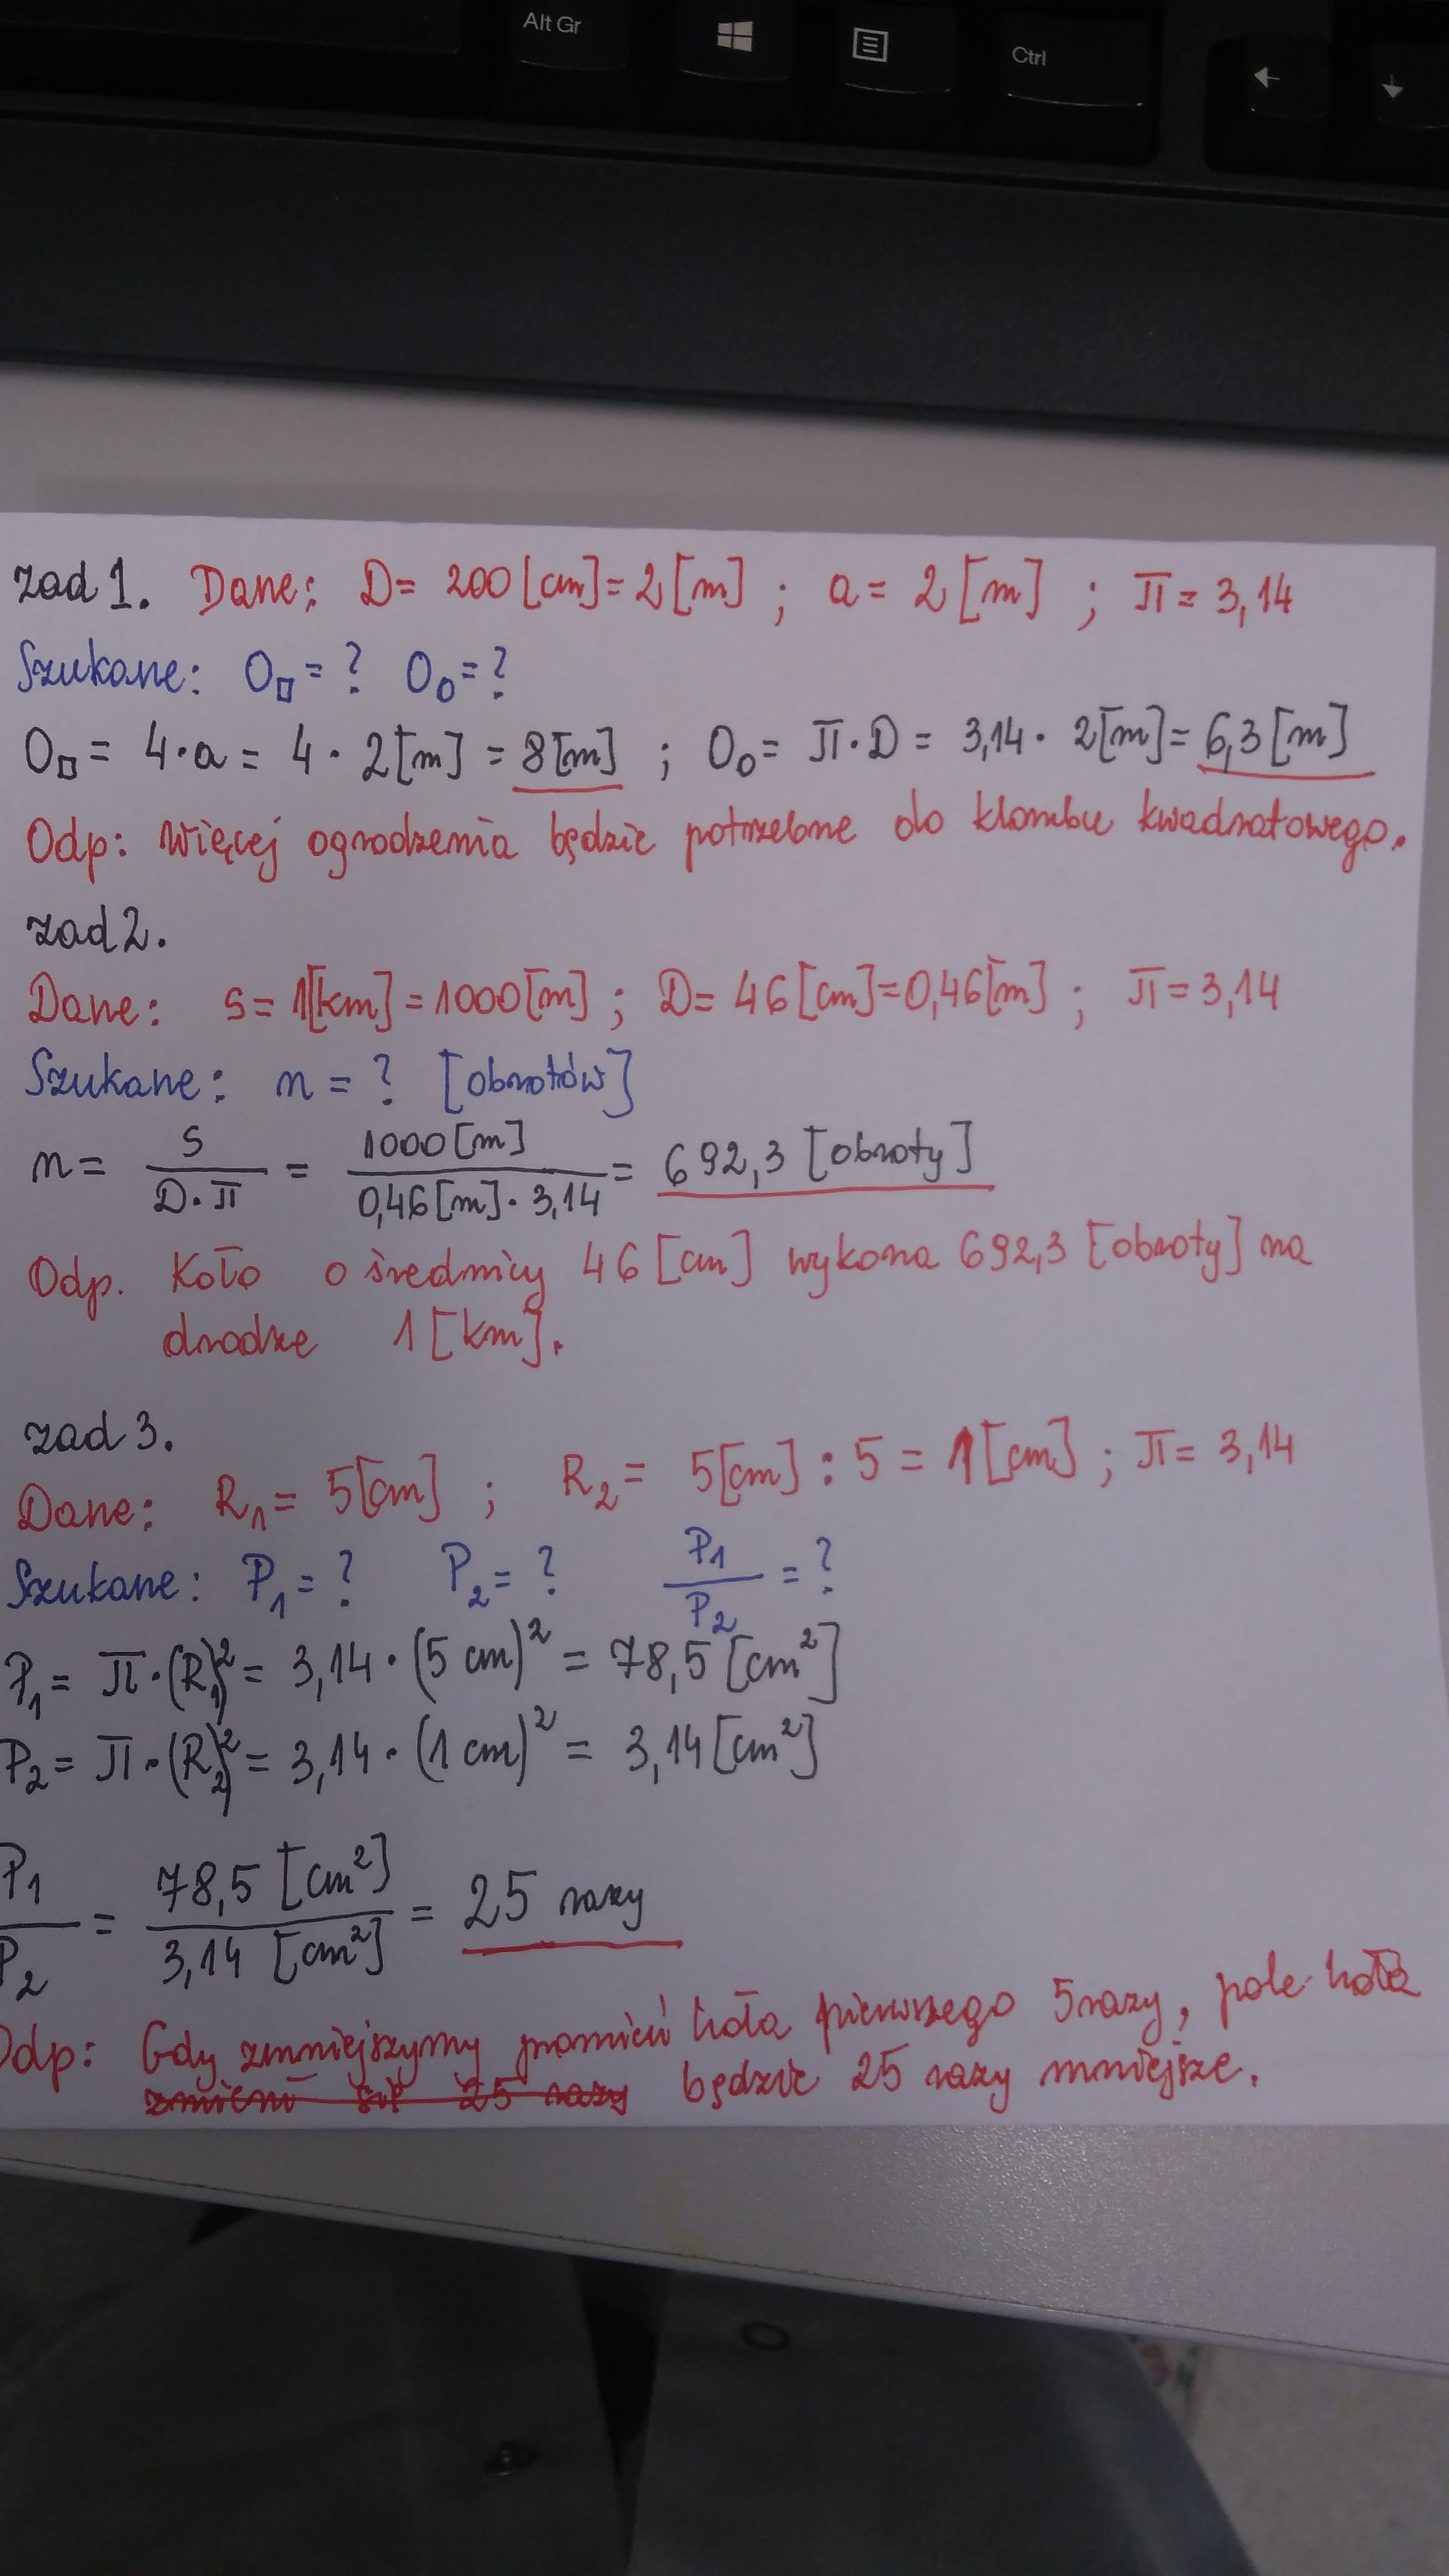 Alt Gr
Ctrl
zad 1. Dane: D = 200 [cm] = 2 [m] ; a = 2 [m] ; π = 3,14
Szukane: O□ = ? O○ = ?
O□ = 4·a = 4 · 2[m] = 8[m] ; O○ = π·D = 3,14 · 2[m] = 6,3 [m]
Odp: Więcej ogrodzenia będzie potrzebne do klombu kwadratowego.
zad 2.
Dane: s = 1[km] = 1000[m] ; D = 46 [cm] = 0,46[m] ; π = 3,14
Szukane: n = ? [obrotów]
n = s / (D·π) = 1000[m] / (0,46[m] · 3,14) = 692,3 [obroty]
Odp. Koło o średnicy 46 [cm] wykona 692,3 [obroty] na
drodze 1 [km].
zad 3.
Dane: R₁ = 5[cm] ; R₂ = 5[cm] : 5 = 1[cm] ; π = 3,14
Szukane: P₁ = ? P₂ = ? P₁/P₂ = ?
P₁ = π·(R₁)² = 3,14 · (5 cm)² = 78,5 [cm²]
P₂ = π·(R₂)² = 3,14 · (1 cm)² = 3,14 [cm²]
P₁/P₂ = 78,5 [cm²] / 3,14 [cm²] = 25 razy
Odp: Gdy zmniejszymy promień koła pierwszego 5 razy, pole koła
zmieni się 25 razy będzie 25 razy mniejsze.